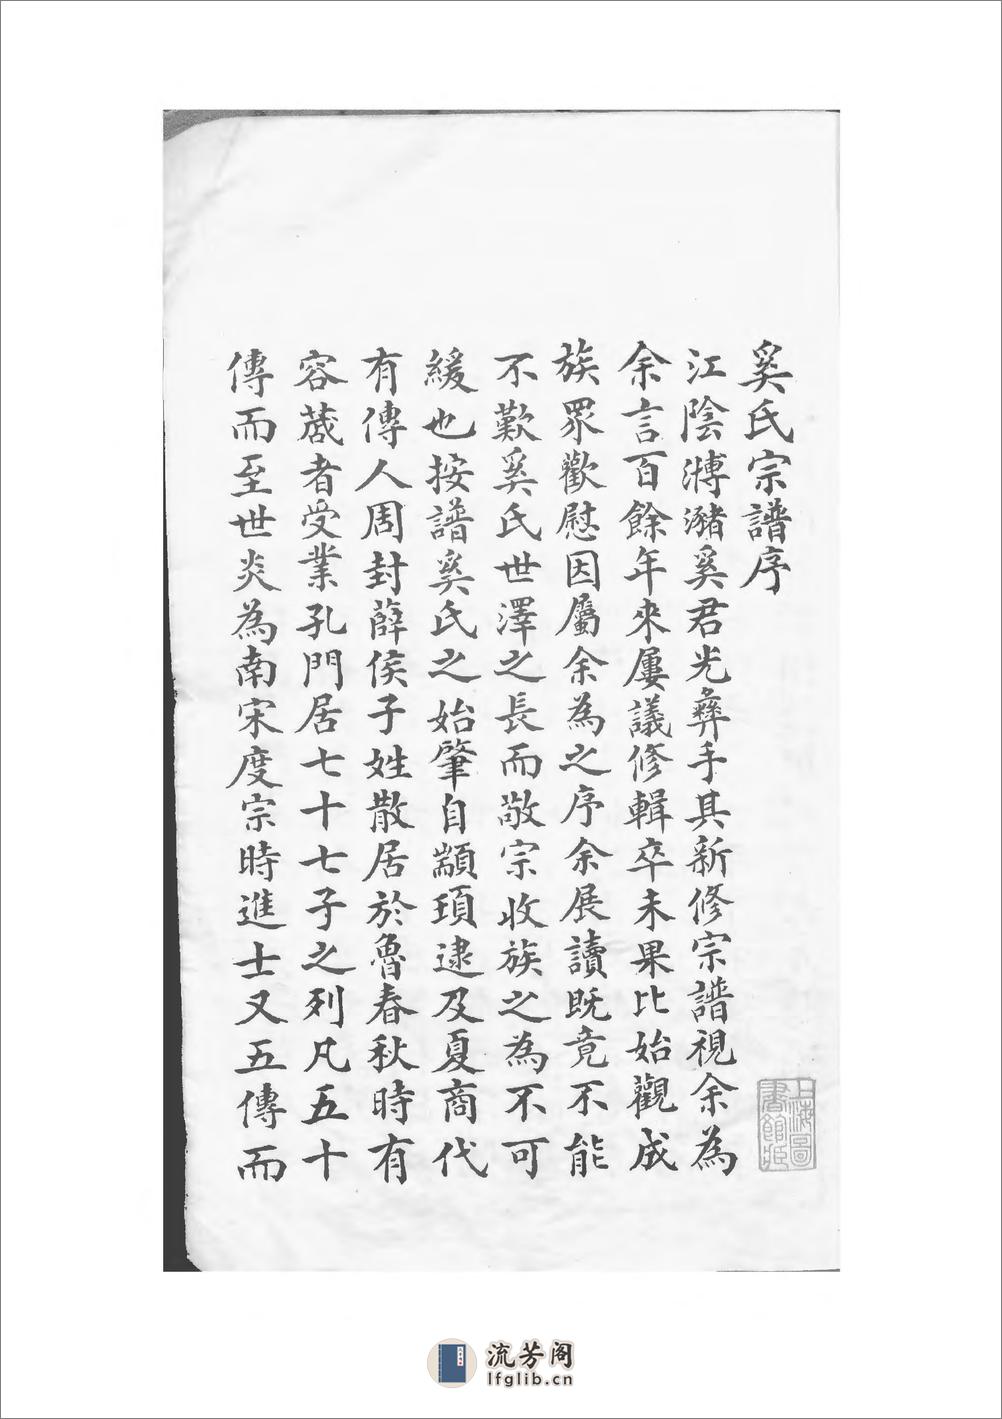 奚氏宗譜序
江陰漙瀦奚君光彝手其新修宗譜視余為
余言百餘年來屢議修輯卒未果比始觀成
族眾歡慰因屬余為之序余展讀既竟不能
不歎奚氏世澤之長而敬宗收族之為不可
緩也按譜奚氏之始肇自顓頊逮及夏商代
有傳人周封薛侯子姓散居於魯春秋時有
容蒧者受業孔門居七十七子之列凡五十
傳而至世炎為南宋度宗時進士又五傳而
上海圖書館藏
流芳阁
lfglib.cn